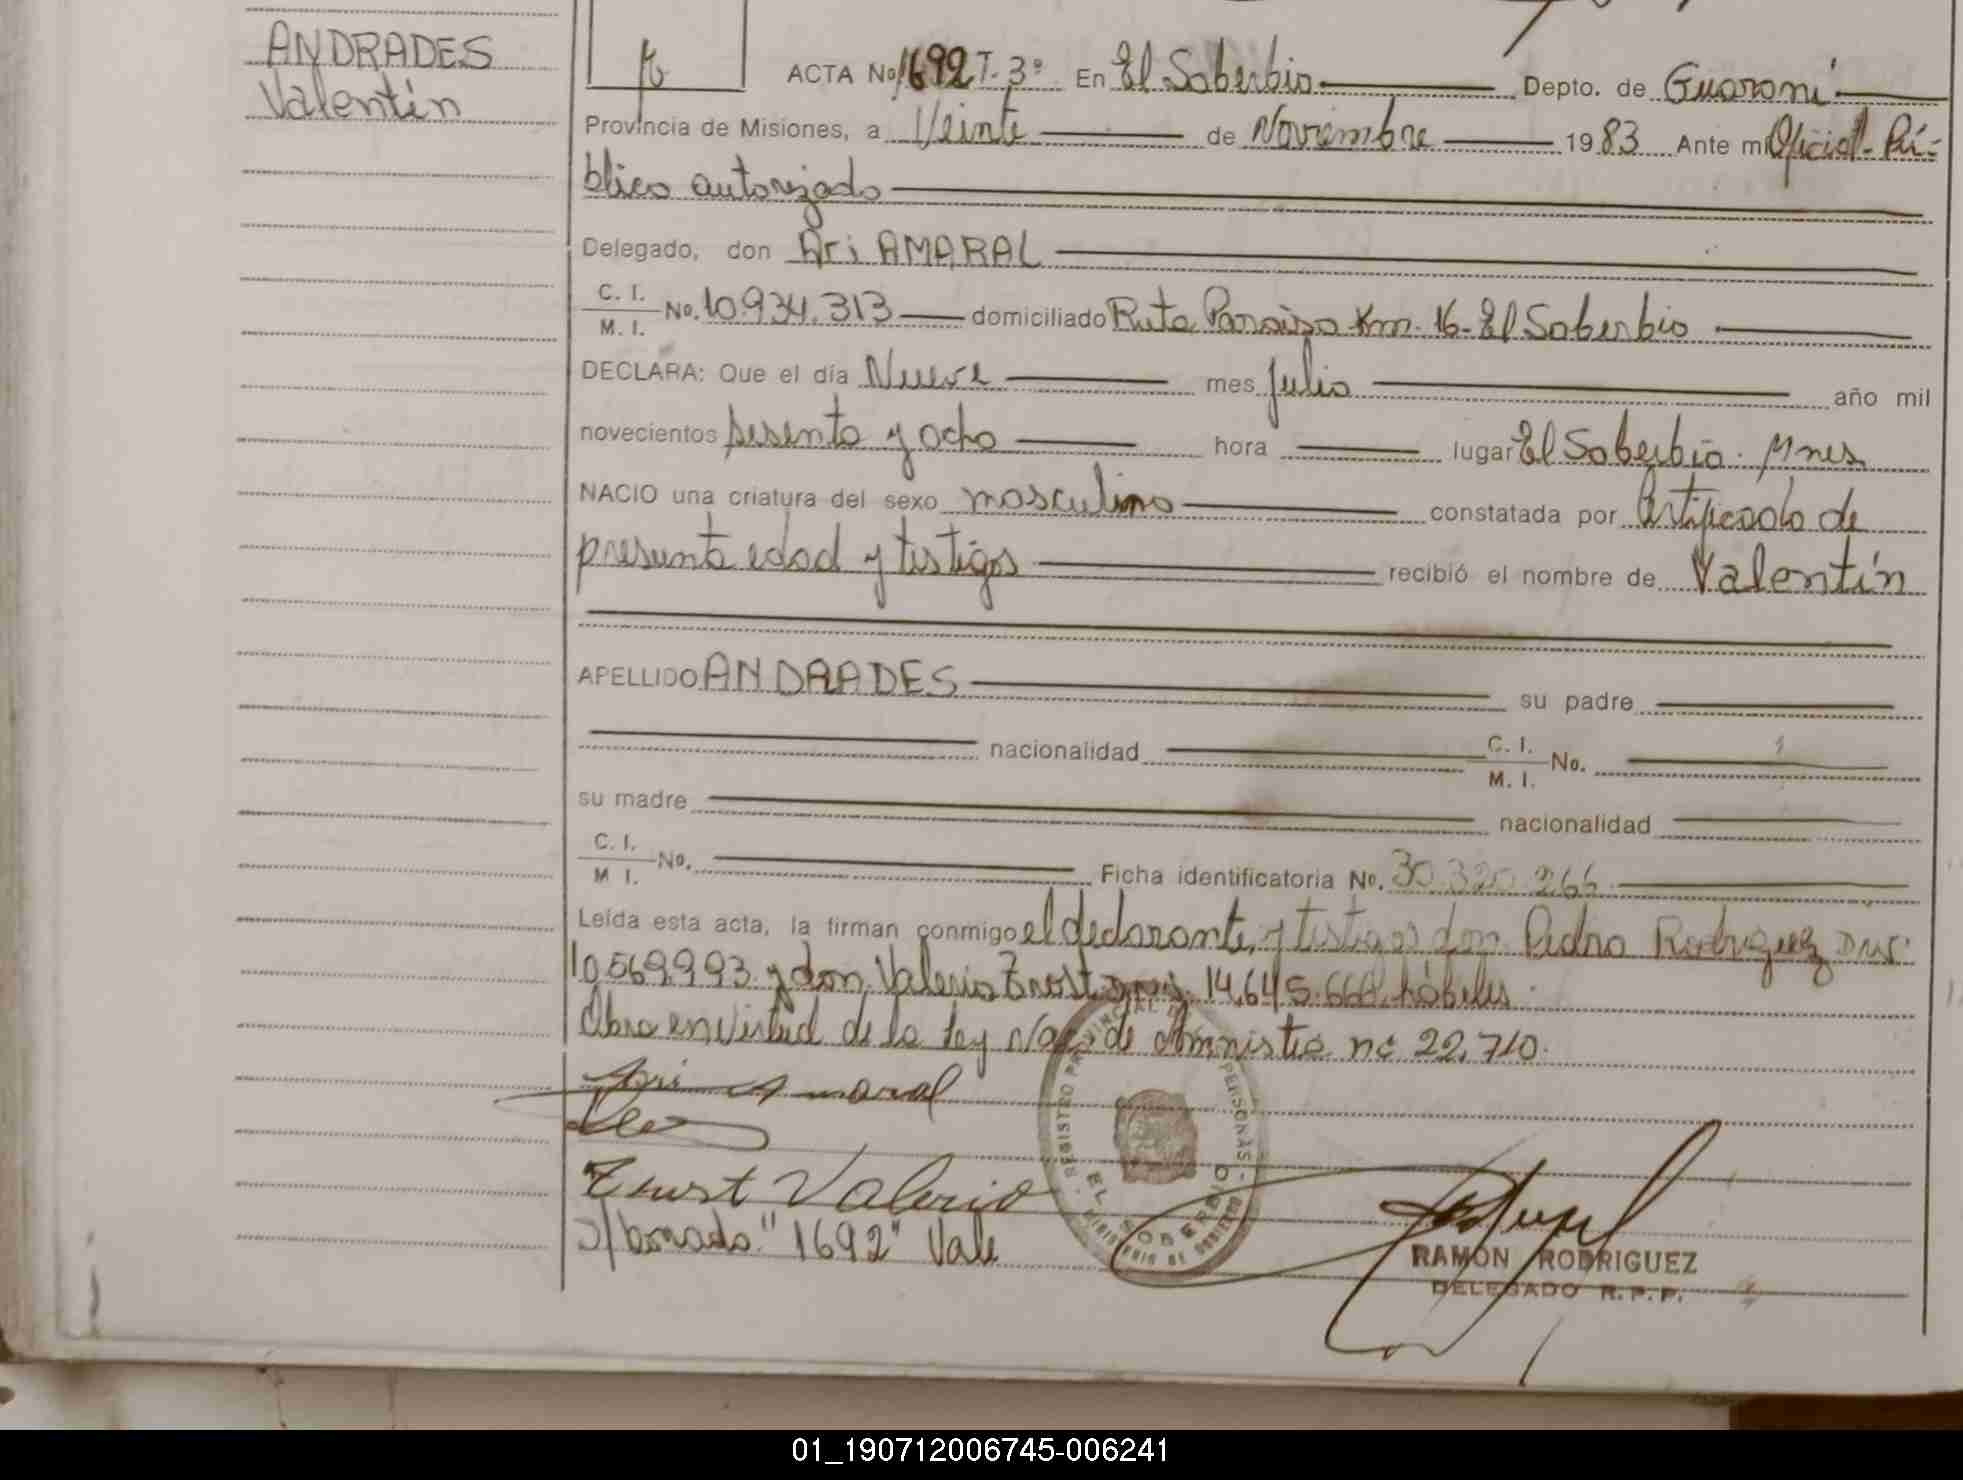 ANDRADES
Valentín
ACTA No 1692 T. 3º En El Soberbio Depto. de Guaraní
Provincia de Misiones, a Veinte de Noviembre 1983 Ante mi Oficial Pú-
blico autorizado
Delegado, don Ari AMARAL
C. I.
M. I. No. 10.934.313 domiciliado Ruta Paraiso Km. 16 - El Soberbio
DECLARA: Que el día Nueve mes Julio año mil
novecientos sesenta y ocho hora lugar El Soberbio. Mnes
NACIO una criatura del sexo masculino constatada por Certificado de
presunta edad y testigos recibió el nombre de Valentín
APELLIDO ANDRADES su padre
nacionalidad C. I.
M. I. No.
su madre nacionalidad
C. I.
M I. No. Ficha identificatoria No. 30.320.266
Leída esta acta, la firman conmigo el declarante, y testigos don Pedro Rodriguez
10.569.993 y don Valerio Ernst 14.645.668 hábiles.
Obra en virtud de la Ley Nac. de Amnistia nº 22.710.
Ari Amaral
Ernst Valerio
"1692" Vale
REGISTRO PROVINCIAL DE LAS PERSONAS
EL SOBERBIO
MINISTERIO DE GOBIERNO
RAMON RODRIGUEZ
DELEGADO R.P.P.
01_190712006745-006241